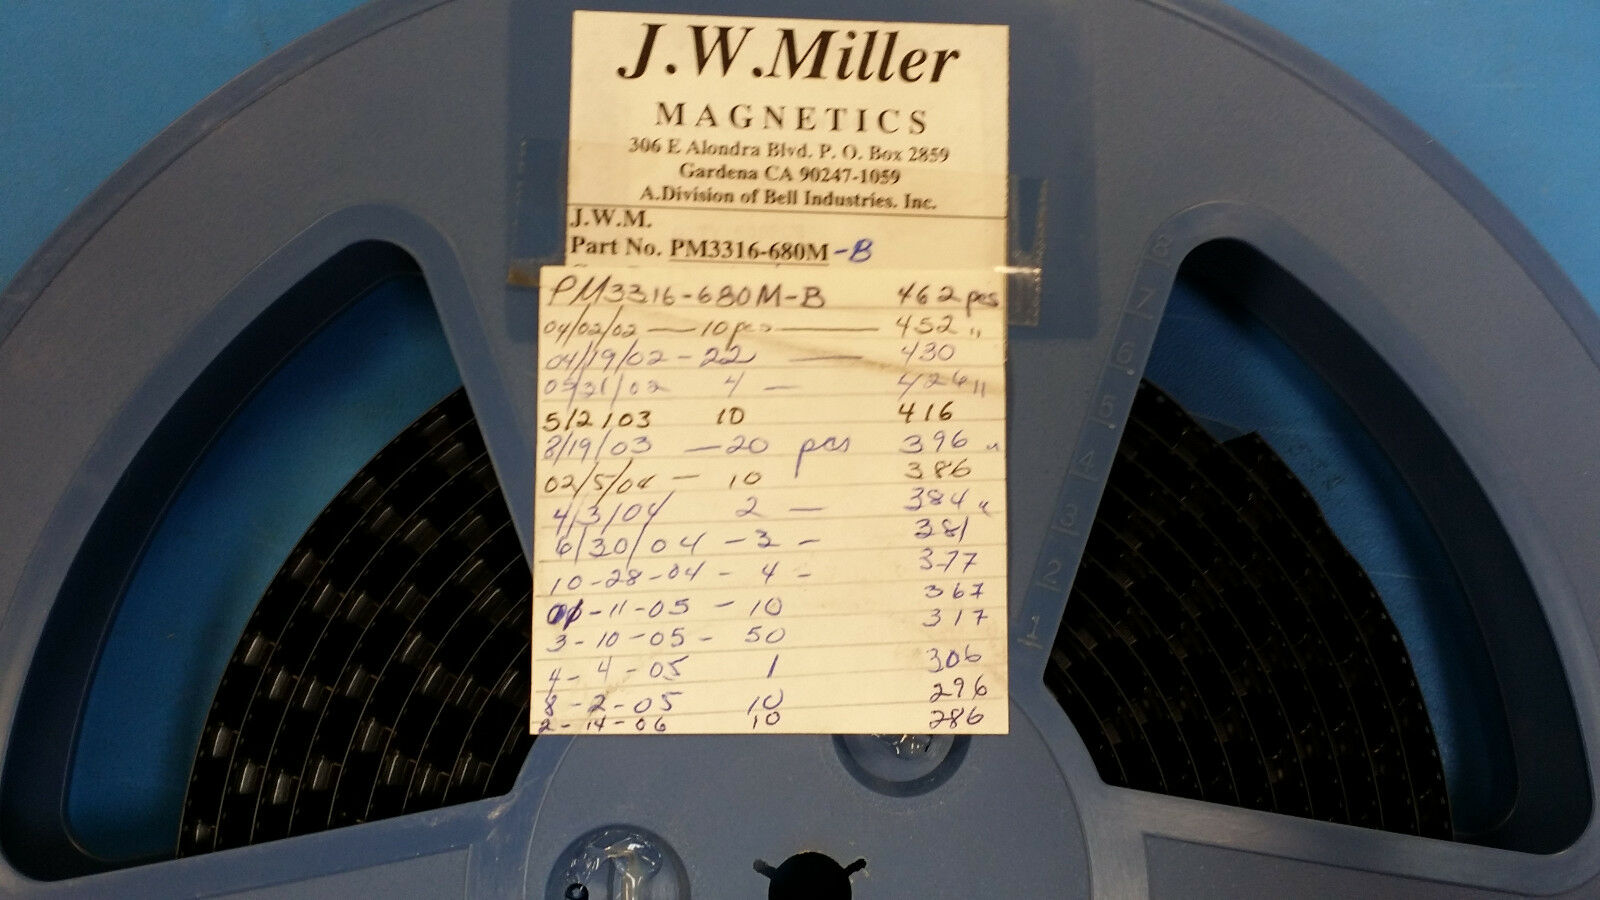 J.W.Miller
MAGNETICS
306 E Alondra Blvd. P. O. Box 2859
Gardena CA 90247-1059
A.Division of Bell Industries. Inc.
J.W.M.
Part No. PM3316-680M-B
PM3316-680M-B 462 pcs
04/02/02 — 10 pcs — 452 "
04/19/02 - 22 — 430
05/31/02 4 — 426 "
5/2/03 10 416
8/19/03 — 20 pcs 396 "
02/5/04 — 10 386
4/3/04 2 — 384 "
6/30/04 - 3 - 381
10-28-04 - 4 - 377
-11-05 - 10 367
3-10-05 - 50 317
4-4-05 1 306
8-2-05 10 296
2-14-06 10 286
8
7
6
5
4
3
2
1